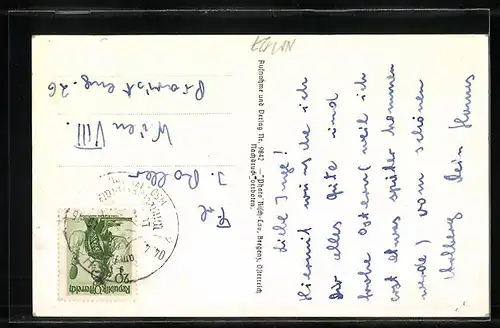 Liebe Inge!
Hiermit wünsche ich
Dir alles Gute und
frohe Ostern (weil ich
erst etwas später kommen
werde) vom schönen
Arlberg Dein Hannes
Aufnahme und Verlag Nr. 9842 — "Photo" Risch-Lau, Bregenz, Österreich
Nachdruck verboten.
Frl.
I. Roller
Wien VIII.
Piaristeng. 26
Republik Österreich
20